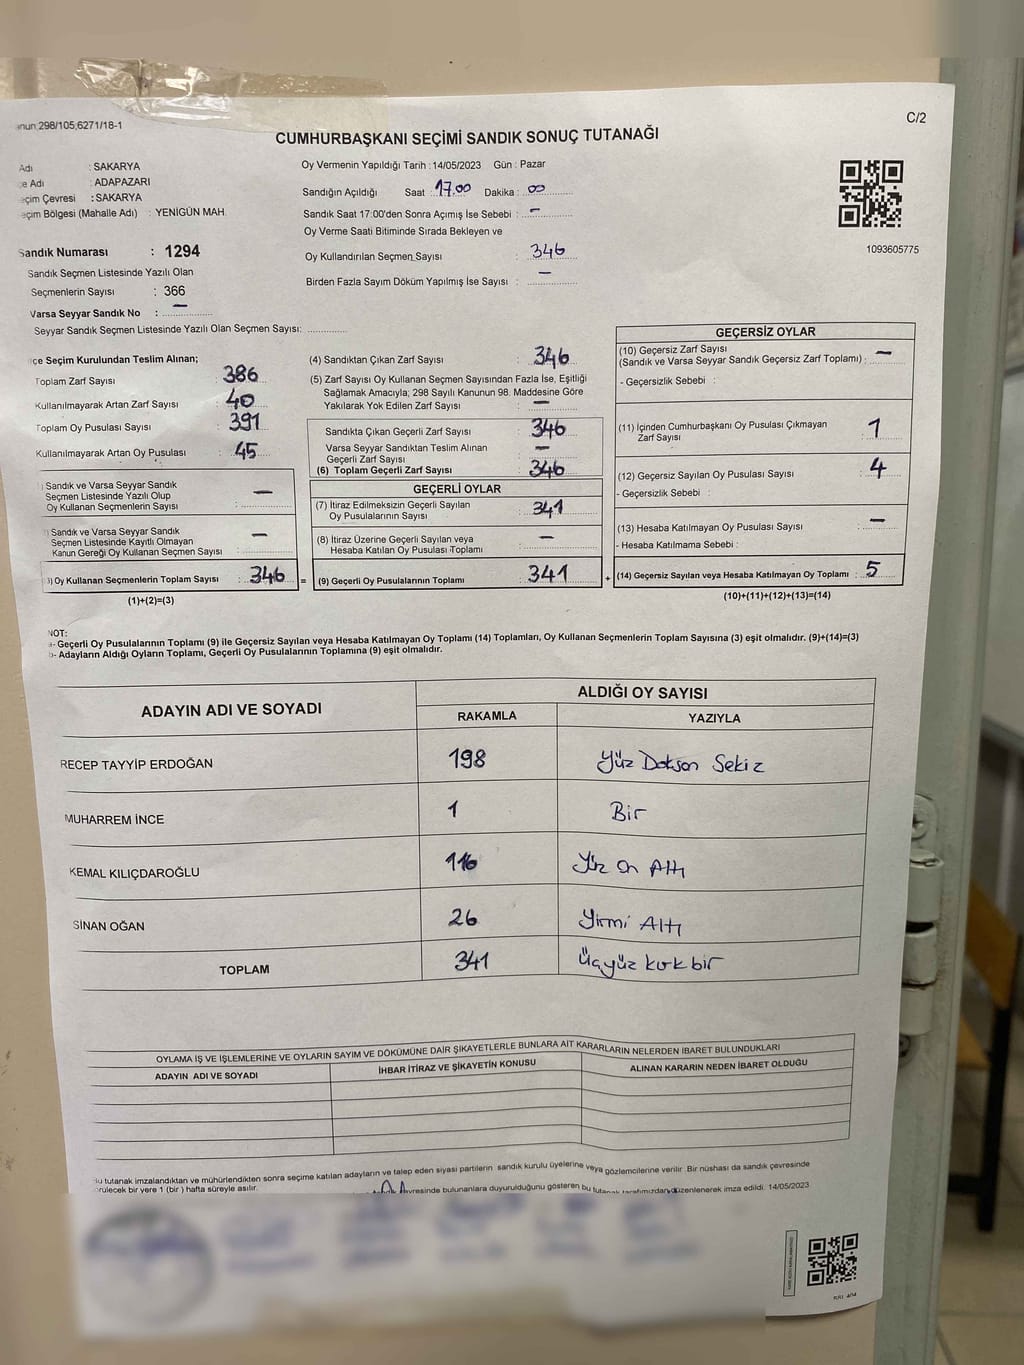 298/105;6271/18-1
C/2
CUMHURBAŞKANI SEÇİMİ SANDIK SONUÇ TUTANAĞI
Adı : SAKARYA
Adı : ADAPAZARI
Çevresi : SAKARYA
Bölgesi (Mahalle Adı) : YENİGÜN MAH.
Sandık Numarası : 1294
Sandık Seçmen Listesinde Yazılı Olan
Seçmenlerin Sayısı : 366
Varsa Seyyar Sandık No : —
Seyyar Sandık Seçmen Listesinde Yazılı Olan Seçmen Sayısı:
Oy Vermenin Yapıldığı Tarih : 14/05/2023 Gün : Pazar
Sandığın Açıldığı Saat : 17.00 Dakika : 00
Sandık Saat 17:00'den Sonra Açımış İse Sebebi : —
Oy Verme Saati Bitiminde Sırada Bekleyen ve
Oy Kullandırılan Seçmen Sayısı : 346
Birden Fazla Sayım Döküm Yapılmış İse Sayısı : —
1093605775
Seçim Kurulundan Teslim Alınan;
Toplam Zarf Sayısı : 386
Kullanılmayarak Artan Zarf Sayısı : 40
Toplam Oy Pusulası Sayısı : 391
Kullanılmayarak Artan Oy Pusulası : 45
Sandık ve Varsa Seyyar Sandık
Seçmen Listesinde Yazılı Olup
Oy Kullanan Seçmenlerin Sayısı : —
Sandık ve Varsa Seyyar Sandık
Seçmen Listesinde Kayıtlı Olmayan
Kanun Gereği Oy Kullanan Seçmen Sayısı : —
) Oy Kullanan Seçmenlerin Toplam Sayısı : 346 =
(1)+(2)=(3)
(4) Sandıktan Çıkan Zarf Sayısı : 346
(5) Zarf Sayısı Oy Kullanan Seçmen Sayısından Fazla İse, Eşitliği
Sağlamak Amacıyla; 298 Sayılı Kanunun 98. Maddesine Göre
Yakılarak Yok Edilen Zarf Sayısı : —
Sandıkta Çıkan Geçerli Zarf Sayısı : 346
Varsa Seyyar Sandıktan Teslim Alınan
Geçerli Zarf Sayısı : —
(6) Toplam Geçerli Zarf Sayısı : 346
GEÇERLİ OYLAR
(7) İtiraz Edilmeksizin Geçerli Sayılan
Oy Pusulalarının Sayısı : 341
(8) İtiraz Üzerine Geçerli Sayılan veya
Hesaba Katılan Oy Pusulası Toplamı : —
(9) Geçerli Oy Pusulalarının Toplamı : 341 +
GEÇERSİZ OYLAR
(10) Geçersiz Zarf Sayısı
(Sandık ve Varsa Seyyar Sandık Geçersiz Zarf Toplamı) : —
- Geçersizlik Sebebi :
(11) İçinden Cumhurbaşkanı Oy Pusulası Çıkmayan
Zarf Sayısı : 1
(12) Geçersiz Sayılan Oy Pusulası Sayısı : 4
- Geçersizlik Sebebi :
(13) Hesaba Katılmayan Oy Pusulası Sayısı : —
- Hesaba Katılmama Sebebi :
(14) Geçersiz Sayılan veya Hesaba Katılmayan Oy Toplamı : 5
(10)+(11)+(12)+(13)=(14)
NOT:
a- Geçerli Oy Pusulalarının Toplamı (9) ile Geçersiz Sayılan veya Hesaba Katılmayan Oy Toplamı (14) Toplamları, Oy Kullanan Seçmenlerin Toplam Sayısına (3) eşit olmalıdır. (9)+(14)=(3)
b- Adayların Aldığı Oyların Toplamı, Geçerli Oy Pusulalarının Toplamına (9) eşit olmalıdır.
ADAYIN ADI VE SOYADI
ALDIĞI OY SAYISI
RAKAMLA YAZIYLA
RECEP TAYYİP ERDOĞAN 198 Yüz Doksan Sekiz
MUHARREM İNCE 1 Bir
KEMAL KILIÇDAROĞLU 116 Yüz On Altı
SİNAN OĞAN 26 Yirmi Altı
TOPLAM 341 Üçyüz kırkbir
OYLAMA İŞ VE İŞLEMLERİNE VE OYLARIN SAYIM VE DÖKÜMÜNE DAİR ŞİKAYETLERLE BUNLARA AİT KARARLARIN NELERDEN İBARET BULUNDUKLARI
ADAYIN ADI VE SOYADI İHBAR İTİRAZ VE ŞİKAYETİN KONUSU ALINAN KARARIN NEDEN İBARET OLDUĞU
tutanak imzalandıktan ve mühürlendikten sonra seçime katılan adayların ve talep eden siyasi partilerin sandık kurulu üyelerine veya gözlemcilerine verilir. Bir nüshası da sandık çevresinde
bir yere 1 (bir) hafta süreyle asılır. çevresinde bulunanlara duyurulduğunu gösteren bu tutanak tarafımızdan düzenlenerek imza edildi. 14/05/2023